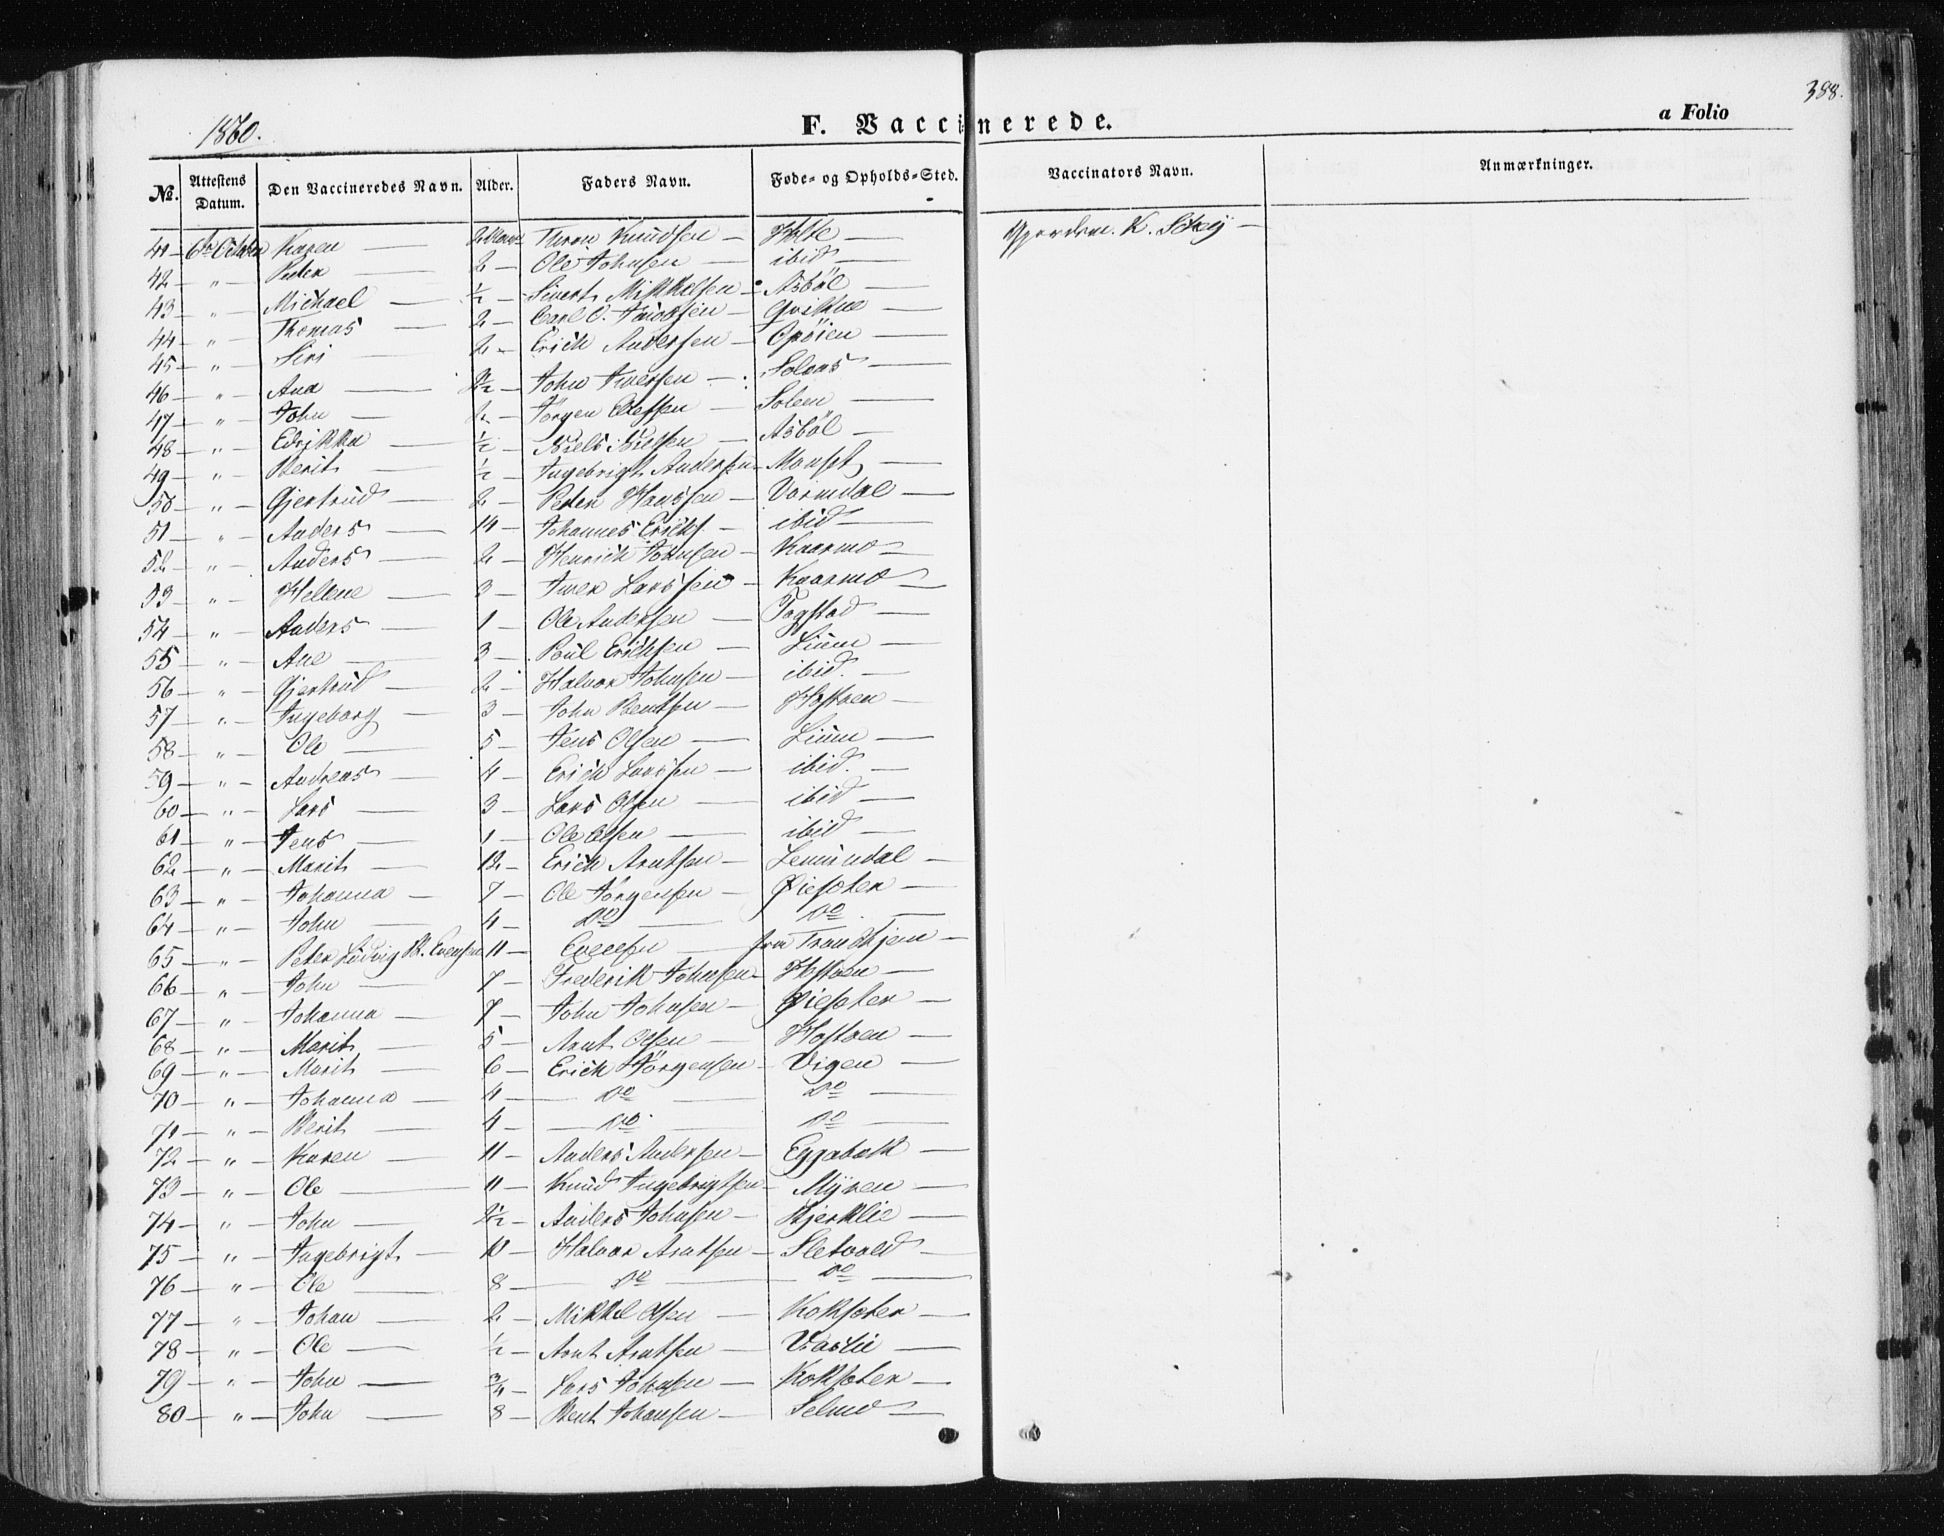 388.
1860.
F. Vaccinerede.
a Folio
№. Attestens Datum. Den Vaccineredes Navn. Alder. Faders Navn. Føde- og Opholds-Sted. Vaccinators Navn. Anmærkninger.
41 — 6te October Karen — 2 Knudsen — Holte — K.
42 — " — Peder 2 — Ole Johnsen — ibid —
43 — " — Michael — ½ — Sivert Mikkelsen — Asbøl —
44 — " — Thomas — 2 — Carl O. — Qvikne —
45 — " — Siri — 2 — Erich Andersen — Opøien —
46 — " — Ana — John Iversen — Solaas —
47 — " — John — 2 — Jörgen Olessen — Solem —
48 — " — Edrikka — ½ — Niels Nielsen — Asböl —
49 — " — Berit — ½ — Ingebrigt Andersen — Monset —
50 — " — Gjertrud — 2 — Peder Hansen — Vormdal —
51 — " — Anders — 14 — Johannes Erichs. — ibid —
52 — " — Anders — 2 — Henrich Johnsen — Kaarmo —
53 — " — Hellene — 3 — Iver Larssen — Kaarmo —
54 — " — Anders — 1 — Ole Andersen — Fogstad —
55 — " — Ane — 3 — Poul Erichsen — Lium —
56 — " — Gjertrud — 2 — Halvor Johnsen — ibid. —
57 — " — Ingeborg — 3 — John Bentsen — Hostoen —
58 — " — Ole — 5 — Jens Olsen — Lium —
59 — " — Andreas — 4 — Erich Larssen — ibid. —
60 — " — Lars — 3 — Lars Olsen — ibid —
61 — " — Jens — 1 — Ole Olsen — ibid —
62 — " — Marit — 12 — Erich Arntsen — Lemundal —
63 — " — Johanna — 7 — Ole Jörgensen — Øiesæter —
64 — " — John — 4 — do — do —
65 — " — Peter Ludvig B. Evensen 11 — Evensen — fra Trondhjem —
66 — " — John — 7 — Frederik Johnsen — Hostoen —
67 — " — Johanna — 7 — John Johnsen — Øiesæter —
68 — " — Marit — 5 — Arnt Olsen — Hostoen —
69 — " — Marit — 6 — Erich Jörgensen — Vigen —
70 — " — Johanna — 4 — do — do —
71 — " — Berit — 4 — do — do —
72 — " — Karen — 11 — Anders Andersen — Eggabakk —
73 — " — Ole — 11 — Knud Ingebrigtsen — Myren —
74 — " — John — Anders Johnsen — Bjerklie —
75 — " — Ingebrigt — 10 — Halvor Arntsen — Sletvold —
76 — " — Ole — 8 — do — do —
77 — " — Johan — 2 — Mikkel Olsen — Koksæter —
78 — " — Ole — ½ — Arnt Arntsen —
79 — " — John — ¾ — Lars Johnsen — Koksæter —
80 — " — John — 8 — Bent Johansen — Selmo —